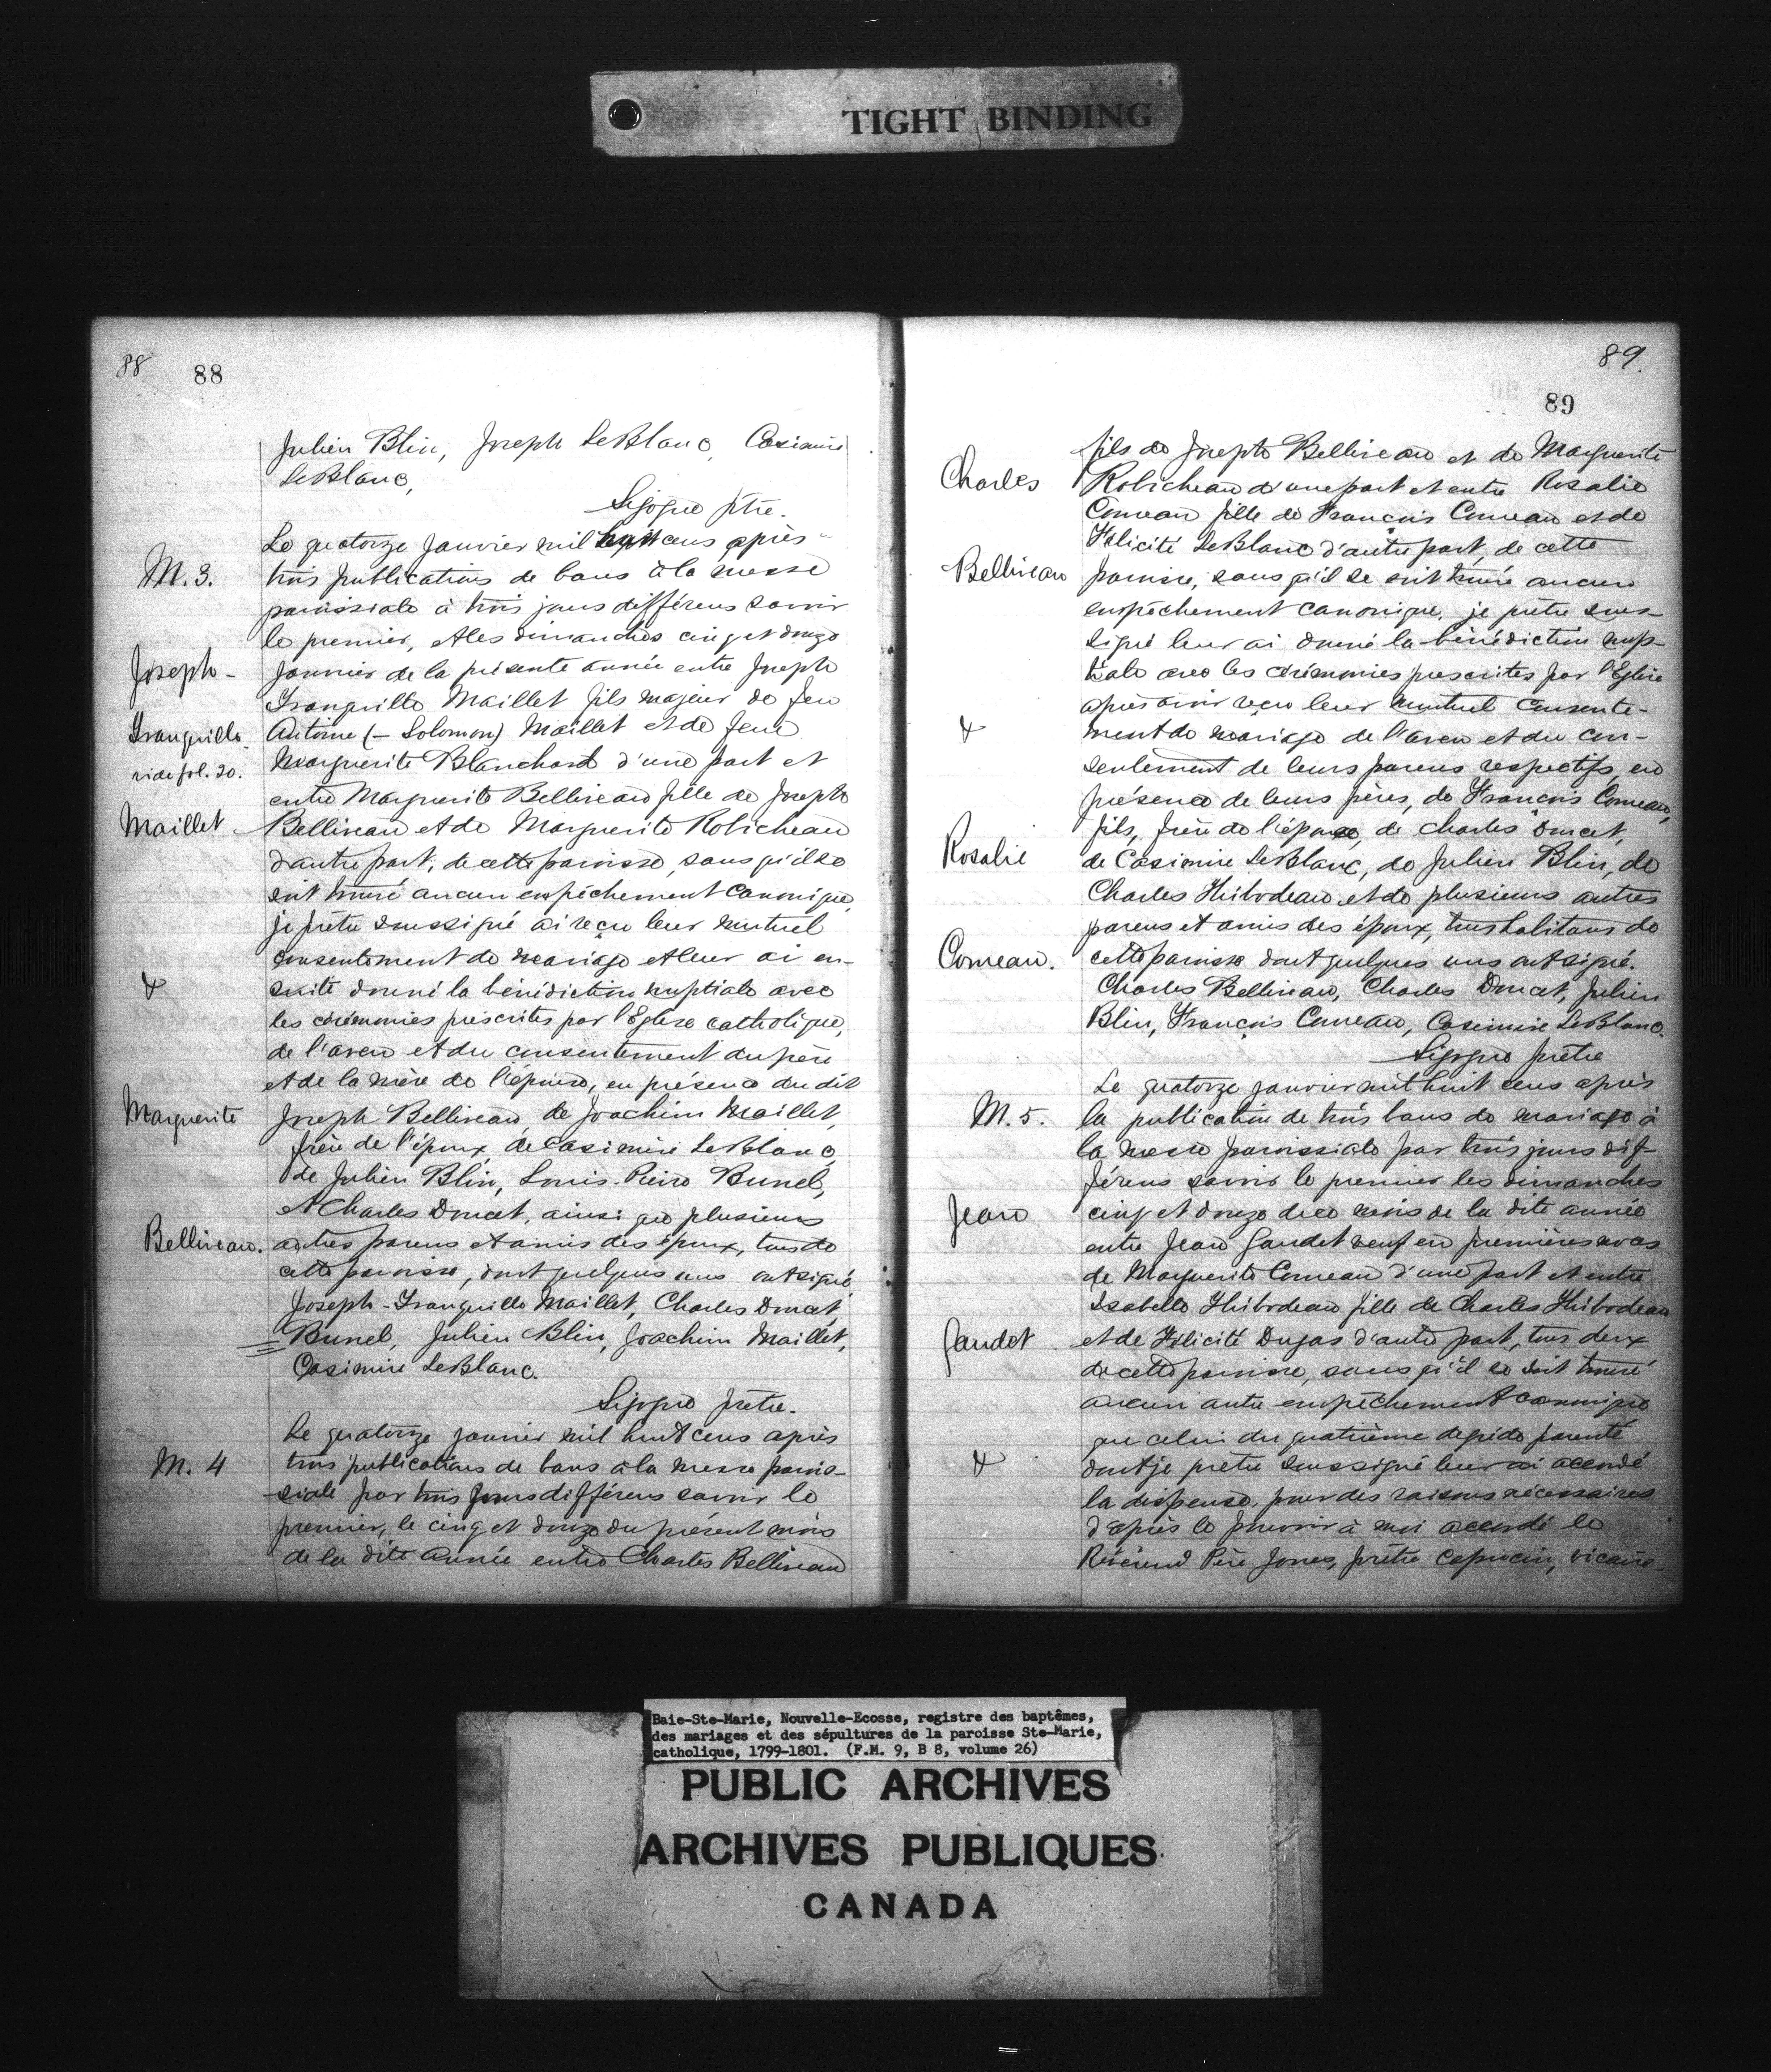 TIGHT BINDING
88
88
Julien Blin, Joseph LeBlanc, Casimire
LeBlanc,
Sigogne ptre.
M. 3.
Le quatorze janvier mil huit cens après
trois publications de bans à la messe
paroissiale à trois jours différens savoir
le premier, et les dimanches cinq et douze
Joseph -
janvier de la présente année entre Joseph
Tranquille Maillet fils majeur de feu
Tranquille
Antoine (- Solomon) Maillet et de feue
vide fol. 20.
Marguerite Blanchard d'une part et
entre Marguerite Belliveau fille de Joseph
Maillet
Belliveau et de Marguerite Robicheau
d'autre part, de cette paroisse, sans qu'il se
soit trouvé aucun empêchement canonique,
je prêtre soussigné ai reçu leur mutuel
consentement de mariage et leur ai en-
&
suite donné la bénédiction nuptiale avec
les cérémonies prescrites par l'Eglise catholique,
de l'aveu et du consentement du père
et de la mère de l'épouse, en présence du dit
Marguerite
Joseph Belliveau, de Joachim Maillet,
frère de l'époux, de Casimire LeBlanc,
de Julien Blin, Louis-Pierre Bunel,
et Charles Doucet, ainsi que plusieurs
Belliveau.
autres parens et amis des époux, tous de
cette paroisse, dont quelques uns ont signé
Joseph-Tranquille Maillet, Charles Doucet,
Bunel, Julien Blin, Joachim Maillet,
Casimire LeBlanc.
Sigogne prêtre.
Le quatorze janvier mil huit cens après
M. 4
trois publications de bans à la messe parois-
siale par trois jours différens savoir le
premier, le cinq et douze du présent mois
de la dite année entre Charles Belliveau
89.
89
fils de Joseph Belliveau et de Marguerite
Charles
Robicheau d'une part et entre Rosalie
Comeau fille de François Comeau et de
Félicité LeBlanc d'autre part, de cette
Belliveau
paroisse, sans qu'il se soit trouvé aucun
empêchement canonique, je prêtre sous-
signé leur ai donné la bénédiction nup-
tiale avec les cérémonies prescrites par l'Eglise
après avoir reçu leur mutuel consente-
&
ment de mariage de l'aveu et du con-
sentement de leurs parens respectifs, en
présence de leurs pères, de François Comeau,
fils, frère de l'épouse, de Charles Doucet,
Rosalie
de Casimire LeBlanc, de Julien Blin, de
Charles Thibodeau et de plusieurs autres
parens et amis des époux, tous habitans de
Comeau.
cette paroisse dont quelques uns ont signé.
Charles Belliveau, Charles Doucet, Julien
Blin, François Comeau, Casimire LeBlanc.
Sigogne prêtre
Le quatorze janvier mil huit cens après
M. 5.
la publication de trois bans de mariage à
la messe paroissiale par trois jours dif-
férens savoir le premier les dimanches
Jean
cinq et douze de ce mois de la dite année
entre Jean Gaudet veuf en premières noces
de Marguerite Comeau d'une part et entre
Isabelle Thibodeau fille de Charles Thibodeau
Gaudet
et de Félicité Dugas d'autre part, tous deux
de cette paroisse, sans qu'il se soit trouvé
aucun autre empêchement canonique
que celui du quatrième degré de parenté
&
dont je prêtre soussigné leur ai accordé
la dispense, pour des raisons nécessaires
d'après le pouvoir à moi accordé le
Révérend Père Jones, prêtre capucin, vicaire
Baie-Ste-Marie, Nouvelle-Ecosse, registre des baptêmes,
des mariages et des sépultures de la paroisse Ste-Marie,
catholique, 1799-1801. (F.M. 9, B 8, volume 26)
PUBLIC ARCHIVES
ARCHIVES PUBLIQUES
CANADA